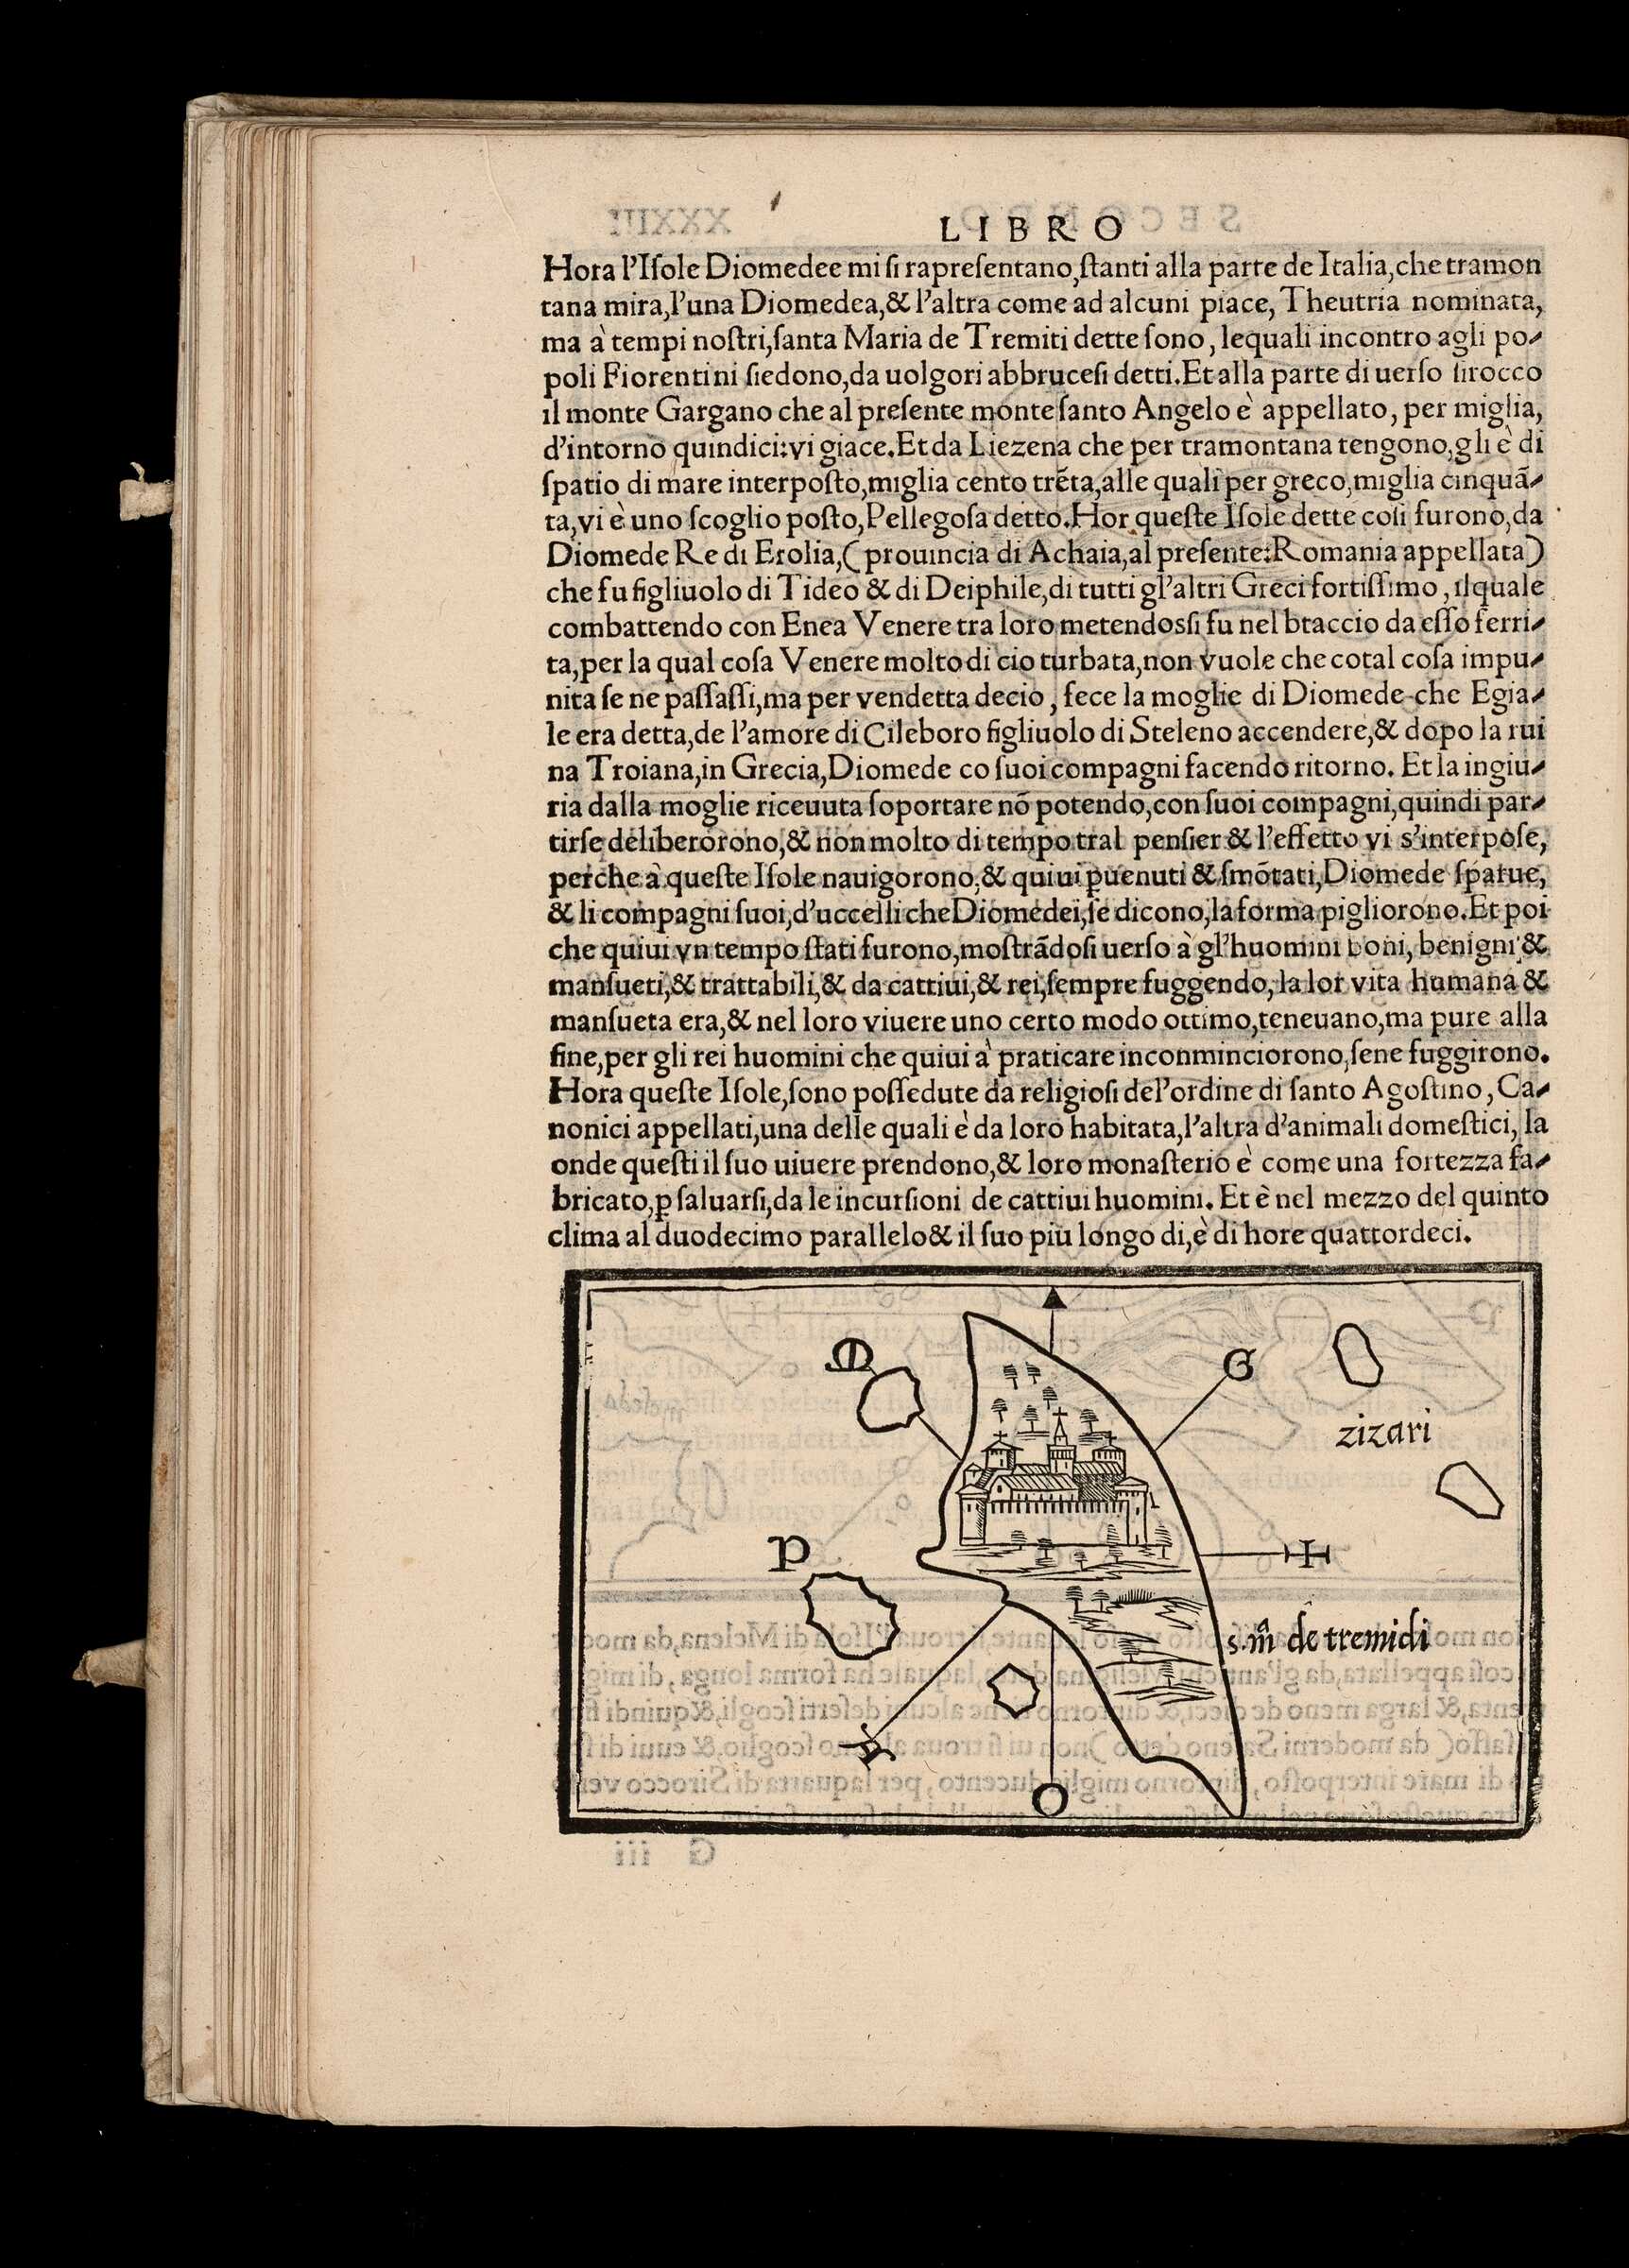 LIBRO
Hora l'Iſole Diomedee mi ſi rapreſentano,ſtanti alla parte de Italia,che tramon
tana mira,l'una Diomedea,& l'altra come ad alcuni piace, Theutria nominata,
ma à tempi noſtri,ſanta Maria de Tremiti dette ſono, lequali incontro agli po-
poli Fiorentini ſiedono,da uolgori abbruceſi detti.Et alla parte di uerſo ſirocco
il monte Gargano che al preſente monte ſanto Angelo è appellato, per miglia,
d'intorno quindici:vi giace.Et da Liezena che per tramontana tengono,gli è di
ſpatio di mare interpoſto,miglia cento trẽta,alle quali per greco,miglia cinquã-
ta,vi è uno ſcoglio poſto,Pellegoſa detto.Hor queſte Iſole dette coſi furono,da
Diomede Re di Etolia,(prouincia di Achaia,al preſente:Romania appellata)
che fu figliuolo di Tideo & di Deiphile,di tutti gl'altri Greci fortiſſimo, ilquale
combattendo con Enea Venere tra loro metendosſi fu nel braccio da eſſo ferri-
ta,per la qual coſa Venere molto di cio turbata,non vuole che cotal coſa impu-
nita ſe ne paſſaſſi,ma per vendetta decio, fece la moglie di Diomede che Egia-
le era detta,de l'amore di Cileboro figliuolo di Steleno accendere,& dopo la rui
na Troiana,in Grecia,Diomede co ſuoi compagni facendo ritorno. Et la ingiu-
ria dalla moglie riceuuta ſoportare nõ potendo,con ſuoi compagni,quindi par-
tirſe deliberorono,& non molto di tempo tral penſier & l'effetto vi s'interpoſe,
perche à queſte Iſole nauigorono,& quiui ꝑuenuti & ſmõtati,Diomede ſparue,
& li compagni ſuoi,d'uccelli che Diomedei,ſe dicono,la forma pigliorono.Et poi
che quiui vn tempo ſtati furono,moſtrãdoſi uerſo à gl'huomini boni, benigni &
manſueti,& trattabili,& da cattiui,& rei,ſempre fuggendo, la lor vita humana &
manſueta era,& nel loro viuere uno certo modo ottimo,teneuano,ma pure alla
fine,per gli rei huomini che quiui à praticare inconminciorono,ſene fuggirono.
Hora queſte Iſole,ſono poſſedute da religioſi del'ordine di ſanto Agoſtino, Ca-
nonici appellati,una delle quali è da loro habitata,l'altra d'animali domeſtici, la
onde queſti il ſuo uiuere prendono,& loro monaſterio è come una fortezza fa-
bricato,ꝑ ſaluarſi,da le incurſioni de cattiui huomini. Et è nel mezzo del quinto
clima al duodecimo parallelo & il ſuo piu longo di,è di hore quattordeci.
M
G
zizari
P
s.m̃ de tremidi
O